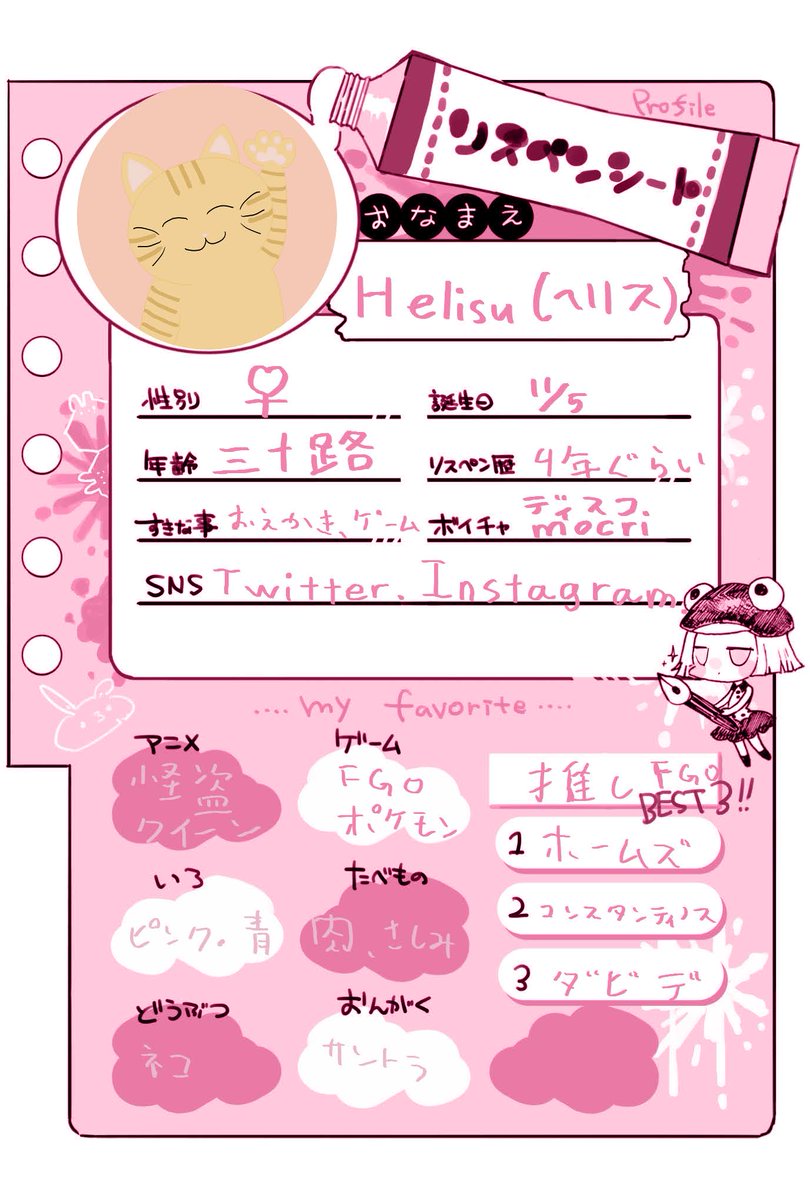 Profile
リスペンシート
おなまえ
Helisu(ヘリス)
性別 ♀
誕生日 11/5
年齢 三十路
リスペン歴 4年ぐらい
すきな事 おえかき、ゲーム
ボイチャ ディスコ.
mocri
SNS Twitter. Instagram.
....my favorite....
アニメ
怪盗
クイーン
ゲーム
FGO
ポケモン
推しFGO
BEST3!!
1 ホームズ
2 コンスタンティノス
3 ダビデ
いろ
ピンク。青
たべもの
肉、さしみ
どうぶつ
ネコ
おんがく
サントラ